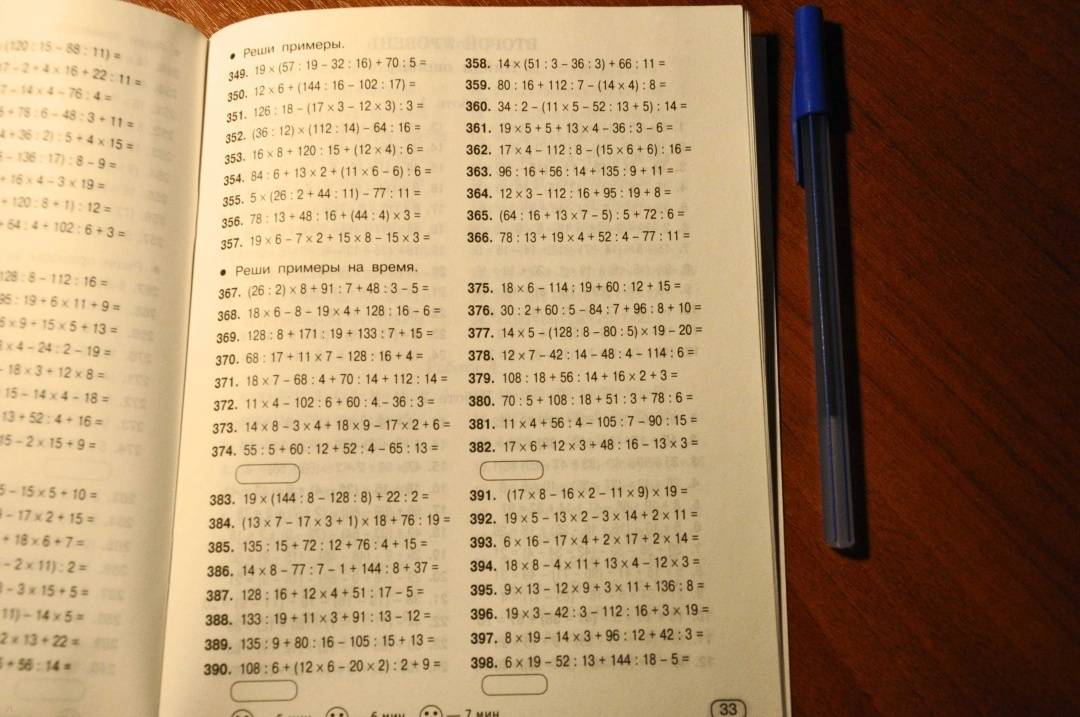 (120 : 15 – 88 : 11) =
– 2 + 4 × 16 + 22 : 11 =
– 14 × 4 – 76 : 4 =
+ 78 : 6 – 48 : 3 + 11 =
+ 36 : 2) : 5 + 4 × 15 =
– 136 : 17) : 8 – 9 =
+ 16 × 4 – 3 × 19 =
+ 120 : 8 + 1) : 12 =
+ 64 : 4 + 102 : 6 + 3 =
128 : 8 – 112 : 16 =
95 : 19 + 6 × 11 + 9 =
× 9 + 15 × 5 + 13 =
× 4 – 24 : 2 – 19 =
– 18 × 3 + 12 × 8 =
: 15 – 14 × 4 – 18 =
13 + 52 : 4 + 16 =
15 – 2 × 15 + 9 =
– 15 × 5 + 10 =
– 17 × 2 + 15 =
+ 18 × 6 + 7 =
– 2 × 11) : 2 =
– 3 × 15 + 5 =
11) – 14 × 5 =
2 × 13 + 22 =
+ 56 : 14 =
• Реши примеры.
349. 19 × (57 : 19 – 32 : 16) + 70 : 5 =
350. 12 × 6 + (144 : 16 – 102 : 17) =
351. 126 : 18 – (17 × 3 – 12 × 3) : 3 =
352. (36 : 12) × (112 : 14) – 64 : 16 =
353. 16 × 8 + 120 : 15 + (12 × 4) : 6 =
354. 84 : 6 + 13 × 2 + (11 × 6 – 6) : 6 =
355. 5 × (26 : 2 + 44 : 11) – 77 : 11 =
356. 78 : 13 + 48 : 16 + (44 : 4) × 3 =
357. 19 × 6 – 7 × 2 + 15 × 8 – 15 × 3 =
358. 14 × (51 : 3 – 36 : 3) + 66 : 11 =
359. 80 : 16 + 112 : 7 – (14 × 4) : 8 =
360. 34 : 2 – (11 × 5 – 52 : 13 + 5) : 14 =
361. 19 × 5 + 5 + 13 × 4 – 36 : 3 – 6 =
362. 17 × 4 – 112 : 8 – (15 × 6 + 6) : 16 =
363. 96 : 16 + 56 : 14 + 135 : 9 + 11 =
364. 12 × 3 – 112 : 16 + 95 : 19 + 8 =
365. (64 : 16 + 13 × 7 – 5) : 5 + 72 : 6 =
366. 78 : 13 + 19 × 4 + 52 : 4 – 77 : 11 =
• Реши примеры на время.
367. (26 : 2) × 8 + 91 : 7 + 48 : 3 – 5 =
368. 18 × 6 – 8 – 19 × 4 + 128 : 16 – 6 =
369. 128 : 8 + 171 : 19 + 133 : 7 + 15 =
370. 68 : 17 + 11 × 7 – 128 : 16 + 4 =
371. 18 × 7 – 68 : 4 + 70 : 14 + 112 : 14 =
372. 11 × 4 – 102 : 6 + 60 : 4 – 36 : 3 =
373. 14 × 8 – 3 × 4 + 18 × 9 – 17 × 2 + 6 =
374. 55 : 5 + 60 : 12 + 52 : 4 – 65 : 13 =
375. 18 × 6 – 114 : 19 + 60 : 12 + 15 =
376. 30 : 2 + 60 : 5 – 84 : 7 + 96 : 8 + 10 =
377. 14 × 5 – (128 : 8 – 80 : 5) × 19 – 20 =
378. 12 × 7 – 42 : 14 – 48 : 4 – 114 : 6 =
379. 108 : 18 + 56 : 14 + 16 × 2 + 3 =
380. 70 : 5 + 108 : 18 + 51 : 3 + 78 : 6 =
381. 11 × 4 + 56 : 4 – 105 : 7 – 90 : 15 =
382. 17 × 6 + 12 × 3 + 48 : 16 – 13 × 3 =
383. 19 × (144 : 8 – 128 : 8) + 22 : 2 =
384. (13 × 7 – 17 × 3 + 1) × 18 + 76 : 19 =
385. 135 : 15 + 72 : 12 + 76 : 4 + 15 =
386. 14 × 8 – 77 : 7 – 1 + 144 : 8 + 37 =
387. 128 : 16 + 12 × 4 + 51 : 17 – 5 =
388. 133 : 19 + 11 × 3 + 91 : 13 – 12 =
389. 135 : 9 + 80 : 16 – 105 : 15 + 13 =
390. 108 : 6 + (12 × 6 – 20 × 2) : 2 + 9 =
391. (17 × 8 – 16 × 2 – 11 × 9) × 19 =
392. 19 × 5 – 13 × 2 – 3 × 14 + 2 × 11 =
393. 6 × 16 – 17 × 4 + 2 × 17 + 2 × 14 =
394. 18 × 8 – 4 × 11 + 13 × 4 – 12 × 3 =
395. 9 × 13 – 12 × 9 + 3 × 11 + 136 : 8 =
396. 19 × 3 – 42 : 3 – 112 : 16 + 3 × 19 =
397. 8 × 19 – 14 × 3 + 96 : 12 + 42 : 3 =
398. 6 × 19 – 52 : 13 + 144 : 18 – 5 =
– 5 мин – 6 мин – 7 мин
33